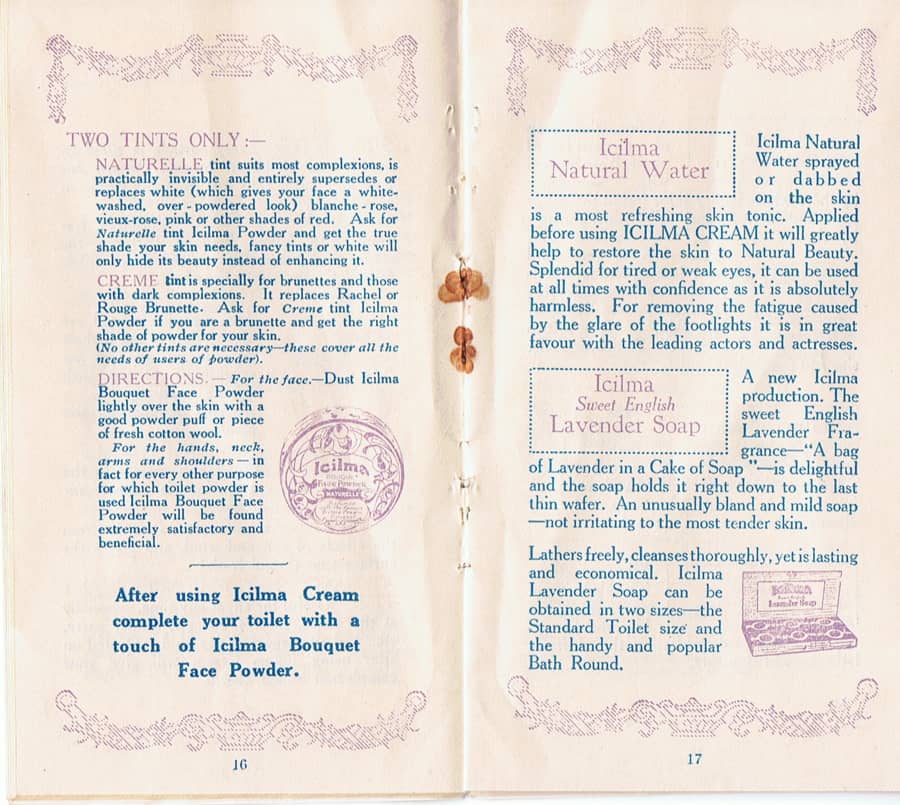 TWO TINTS ONLY :—
NATURELLE tint suits most complexions, is
practically invisible and entirely supersedes or
replaces white (which gives your face a white-
washed, over-powdered look) blanche-rose,
vieux-rose, pink or other shades of red. Ask for
Naturelle tint Icilma Powder and get the true
shade your skin needs, fancy tints or white will
only hide its beauty instead of enhancing it.
CREME tint is specially for brunettes and those
with dark complexions. It replaces Rachel or
Rouge Brunette. Ask for Creme tint Icilma
Powder if you are a brunette and get the right
shade of powder for your skin.
(No other tints are necessary—these cover all the
needs of users of powder).
DIRECTIONS.— For the face.—Dust Icilma
Bouquet Face Powder
lightly over the skin with a
good powder puff or piece
of fresh cotton wool.
For the hands, neck,
arms and shoulders — in
fact for every other purpose
for which toilet powder is
used Icilma Bouquet Face
Powder will be found
extremely satisfactory and
beneficial.
Icilma
BOUQUET
FACE POWDER
NATURELLE
After using Icilma Cream
complete your toilet with a
touch of Icilma Bouquet
Face Powder.
16
Icilma
Natural Water
Icilma Natural
Water sprayed
or dabbed
on the skin
is a most refreshing skin tonic. Applied
before using ICILMA CREAM it will greatly
help to restore the skin to Natural Beauty.
Splendid for tired or weak eyes, it can be used
at all times with confidence as it is absolutely
harmless. For removing the fatigue caused
by the glare of the footlights it is in great
favour with the leading actors and actresses.
Icilma
Sweet English
Lavender Soap
A new Icilma
production. The
sweet English
Lavender Fra-
grance—“A bag
of Lavender in a Cake of Soap ”—is delightful
and the soap holds it right down to the last
thin wafer. An unusually bland and mild soap
—not irritating to the most tender skin.
Lathers freely, cleanses thoroughly, yet is lasting
and economical. Icilma
Lavender Soap can be
obtained in two sizes—the
Standard Toilet size and
the handy and popular
Bath Round.
Icilma
Lavender Soap
17